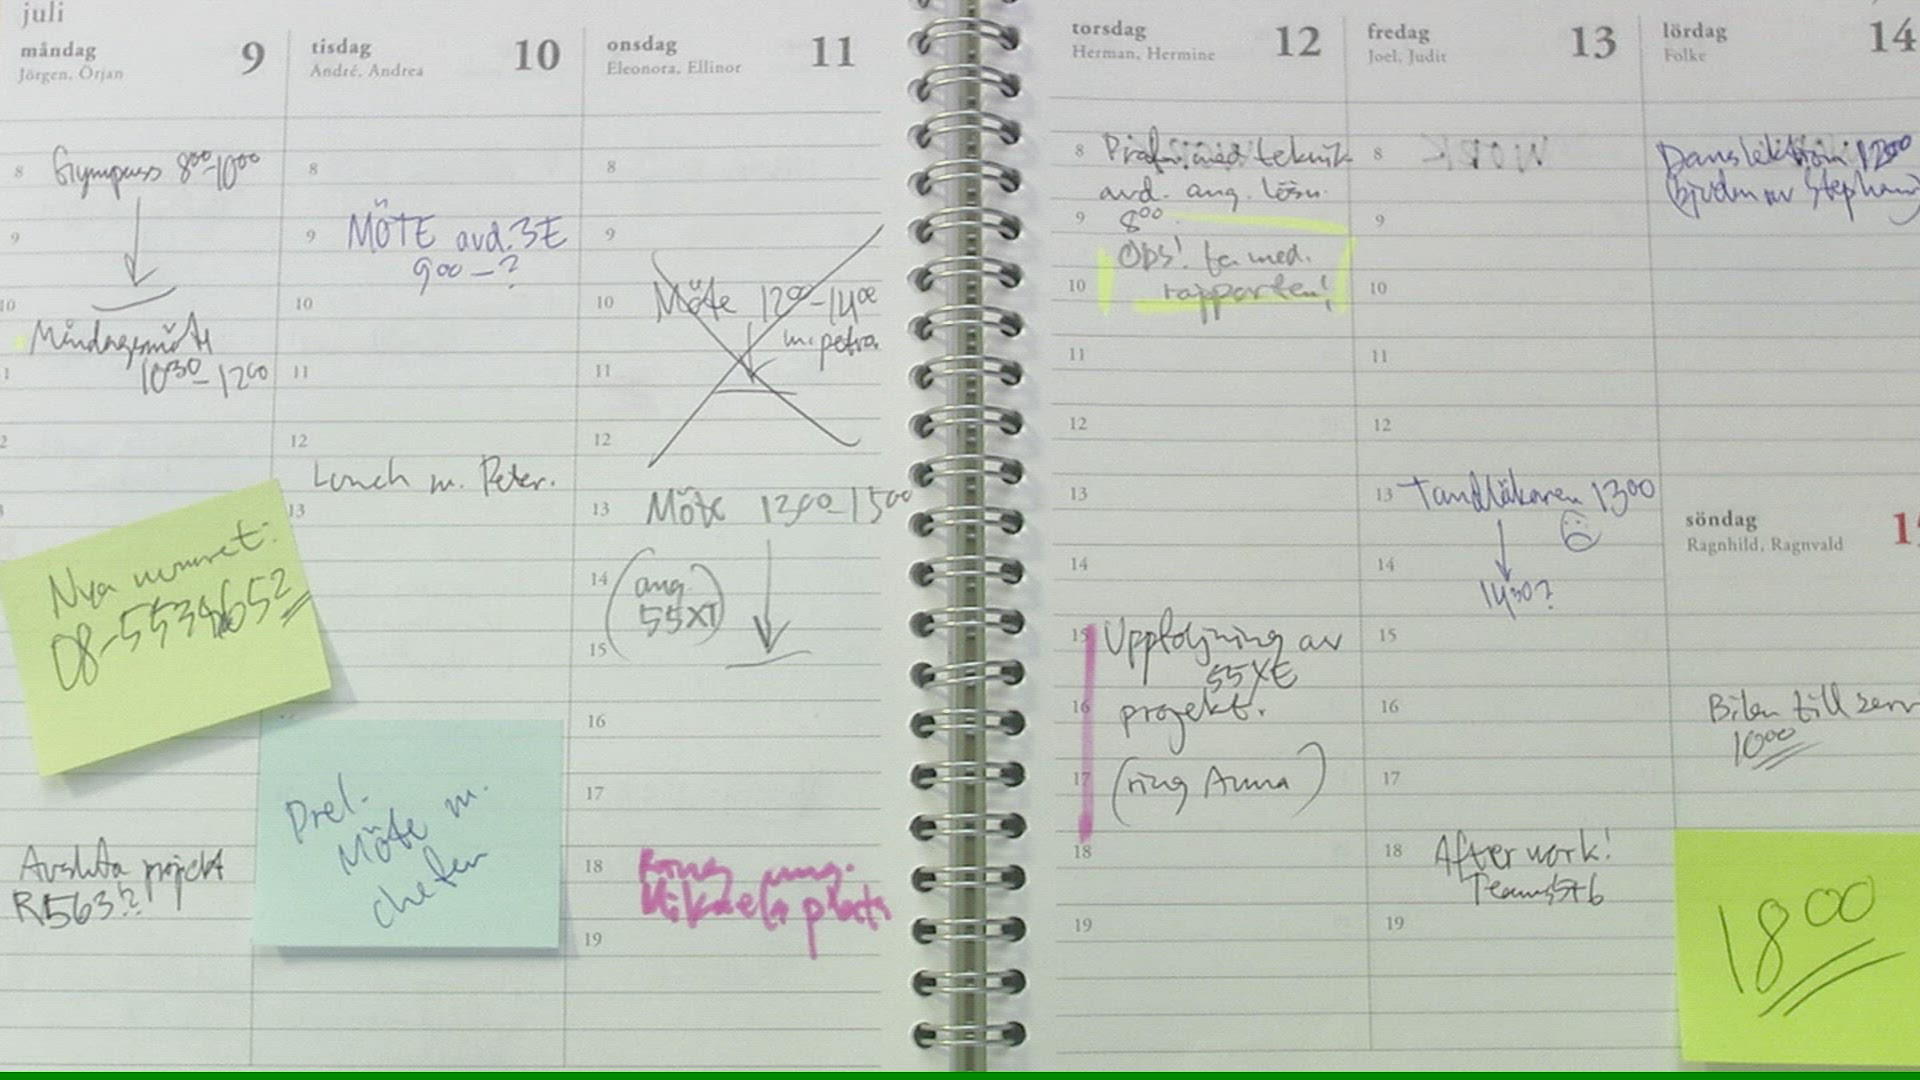 juli
måndag 9
Jörgen, Örjan
8 Gympass 8⁰⁰-10⁰⁰
9
10
Måndagsmöte
10³⁰-12⁰⁰
Nya numret:
Avsluta projekt
R563??
tisdag 10
André, Andrea
8
9 MÖTE avd. 3E
900-?
10
11
12
Lunch m. Peter.
13
Prel.
Möte m.
chefen
onsdag 11
Eleonora, Ellinor
8
9
10 Möte 12⁰⁰-14⁰⁰
m. petra.
11
12
13 Möte 1300-15⁰⁰
14 (ang.
55XT)
15
16
17
18 Ring ang.
Mikaela plats
19
torsdag 12
Herman, Hermine
8 med teknik
avd. ang. lösn.
9 8⁰⁰
Obs! ta med.
10 rapporten!
11
12
13
14
15 Uppföljning av
55XE
16 projekt.
17 (ring Anna)
18
19
fredag 13
Joel, Judit
8 WORK
9
10
11
12
13 Tandläkaren 1300
14
1430?
15
16
17
18 After work!
Team 5+6
19
lördag 14
Folke
Danslektion 1200
(bjuden av Stephan
söndag 1
Ragnhild, Ragnvald
Bilen till serv
10⁰⁰
18⁰⁰